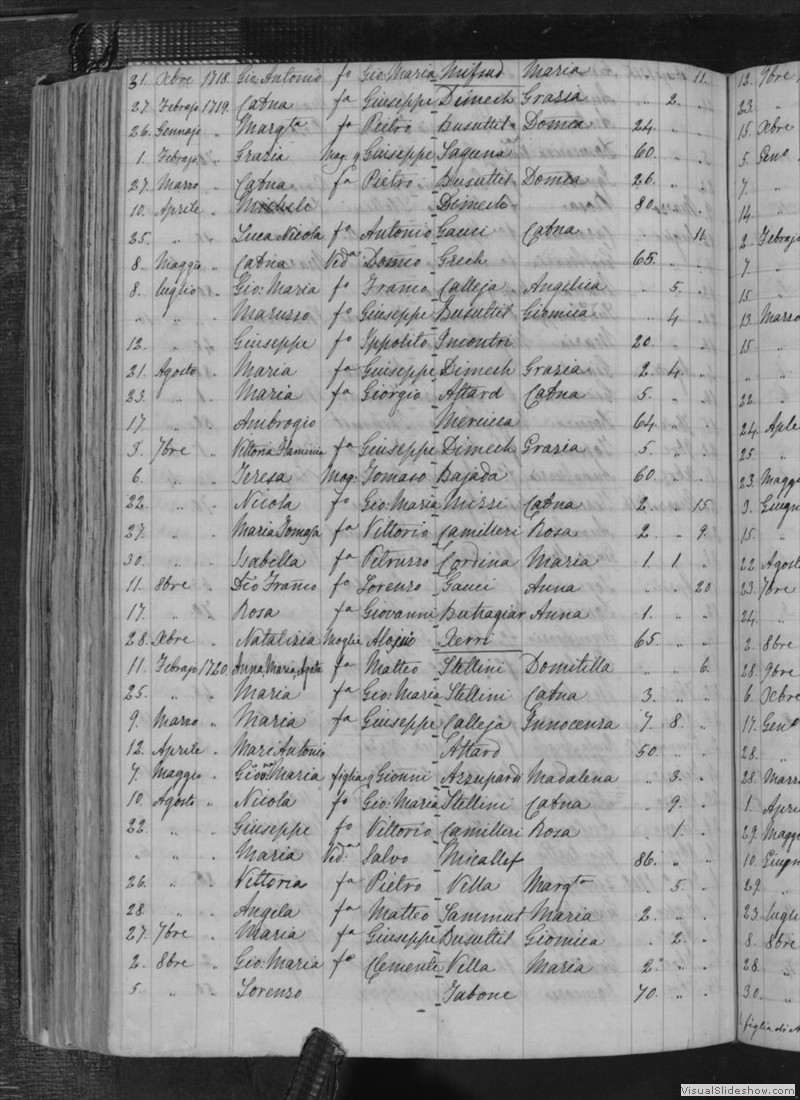 31. Xbre 1718. Gio: Antonio fo Gio: Maria Mifsud Maria " " 11.
27. Febrajo 1719. Catna fa Giuseppe Dimech Grazia " 2. "
26. Gennajo " Margta fa Pietro Busuttil Domca 24. " "
1. Febrajo " Grazia Mog. q Giuseppe Laguna 60. " "
27. Marzo " Catna fa Pietro Busuttil Domca 26. " "
10. Aprile " Michele Dimech 80. " "
25. " " Luca Nicola fo Antonio Gauci Catna " " 11.
8. Maggio " Catna Veda Domco Grech 65. " "
8. Luglio " Gio: Maria fo Franco Calleja Angelica " 5. "
" " " Marusso fo Giuseppe Busuttil Giomica " 4 "
12. " " Giuseppe fo Ippolito Incontri 20. " "
21. Agosto " Maria fa Giuseppe Dimech Grazia 2. 4. "
23. " " Maria fa Giorgio Attard Catna 5. " "
17. " " Ambrogio Mercieca 64. " "
3. 7bre " Vittoria Flaminia fa Giuseppe Dimech Grazia 5. " "
6. " " Teresa Mog: Tomaso Bajada 60. " "
22. " " Nicola fo Gio: Maria Mizzi Catna 2. " 15.
27. " " Maria Tomasa fa Vittorio Camilleri Rosa 2. " 9.
30. " " Isabella fa Petruzzo Cordina Maria 1. 1. "
11. 8bre " Dio Franco fo Lorenzo Gauci Anna " " 20
17. " " Rosa fa Giovanni Buttagiar Anna 1. " "
28. Xbre " Natalizia Moglie Aloysio Xerri 65. " "
11. Febrajo 1720. Anna, Maria, Agata fa Matteo Stellini Domitilla " " 6.
25. " " Maria fa Gio: Maria Stellini Catna 3. " "
9. Marzo " Maria fa Giuseppe Calleja Innocenza 7. 8. "
12. Aprile " Marc'Antonio Attard 50. " "
7. Maggio " Giovna Maria figlia q Gionni Azzupard Madalena " 3. "
10. Agosto " Nicola fo Gio: Maria Stellini Catna " 9. "
22. " " Giuseppe fo Vittorio Camilleri Rosa " 1. "
" " " Maria Veda Salvo Micallef 86. " "
26. " " Vittoria fa Pietro Vella Margta " 5. "
28. " " Angela fa Matteo Sammut Maria 2. " "
27. 7bre " Maria fa Giuseppe Busuttil Giomica " 2. "
2. 8bre " Gio: Maria fo Clemente Vella Maria 2. " "
5. " " Lorenzo Tabone 70. " "
12. 9bre
23. "
15. Xbre
5. Geno
7. "
14. "
2. Febrajo
7. "
15. "
13. Marzo
15. "
" "
22. "
24. Aple
25. "
23. Maggi
3. Giugn
15. "
22. Agost
23. 7bre
24. "
2. 8bre
28. 9bre
6. Xbre
17. Geno
28. "
28. Marz
1. Apri
29. Maggi
10. Giugn
29. "
23. Lugli
8. 8bre
28. "
30. "
figlia di A
VisualSlideshow.com